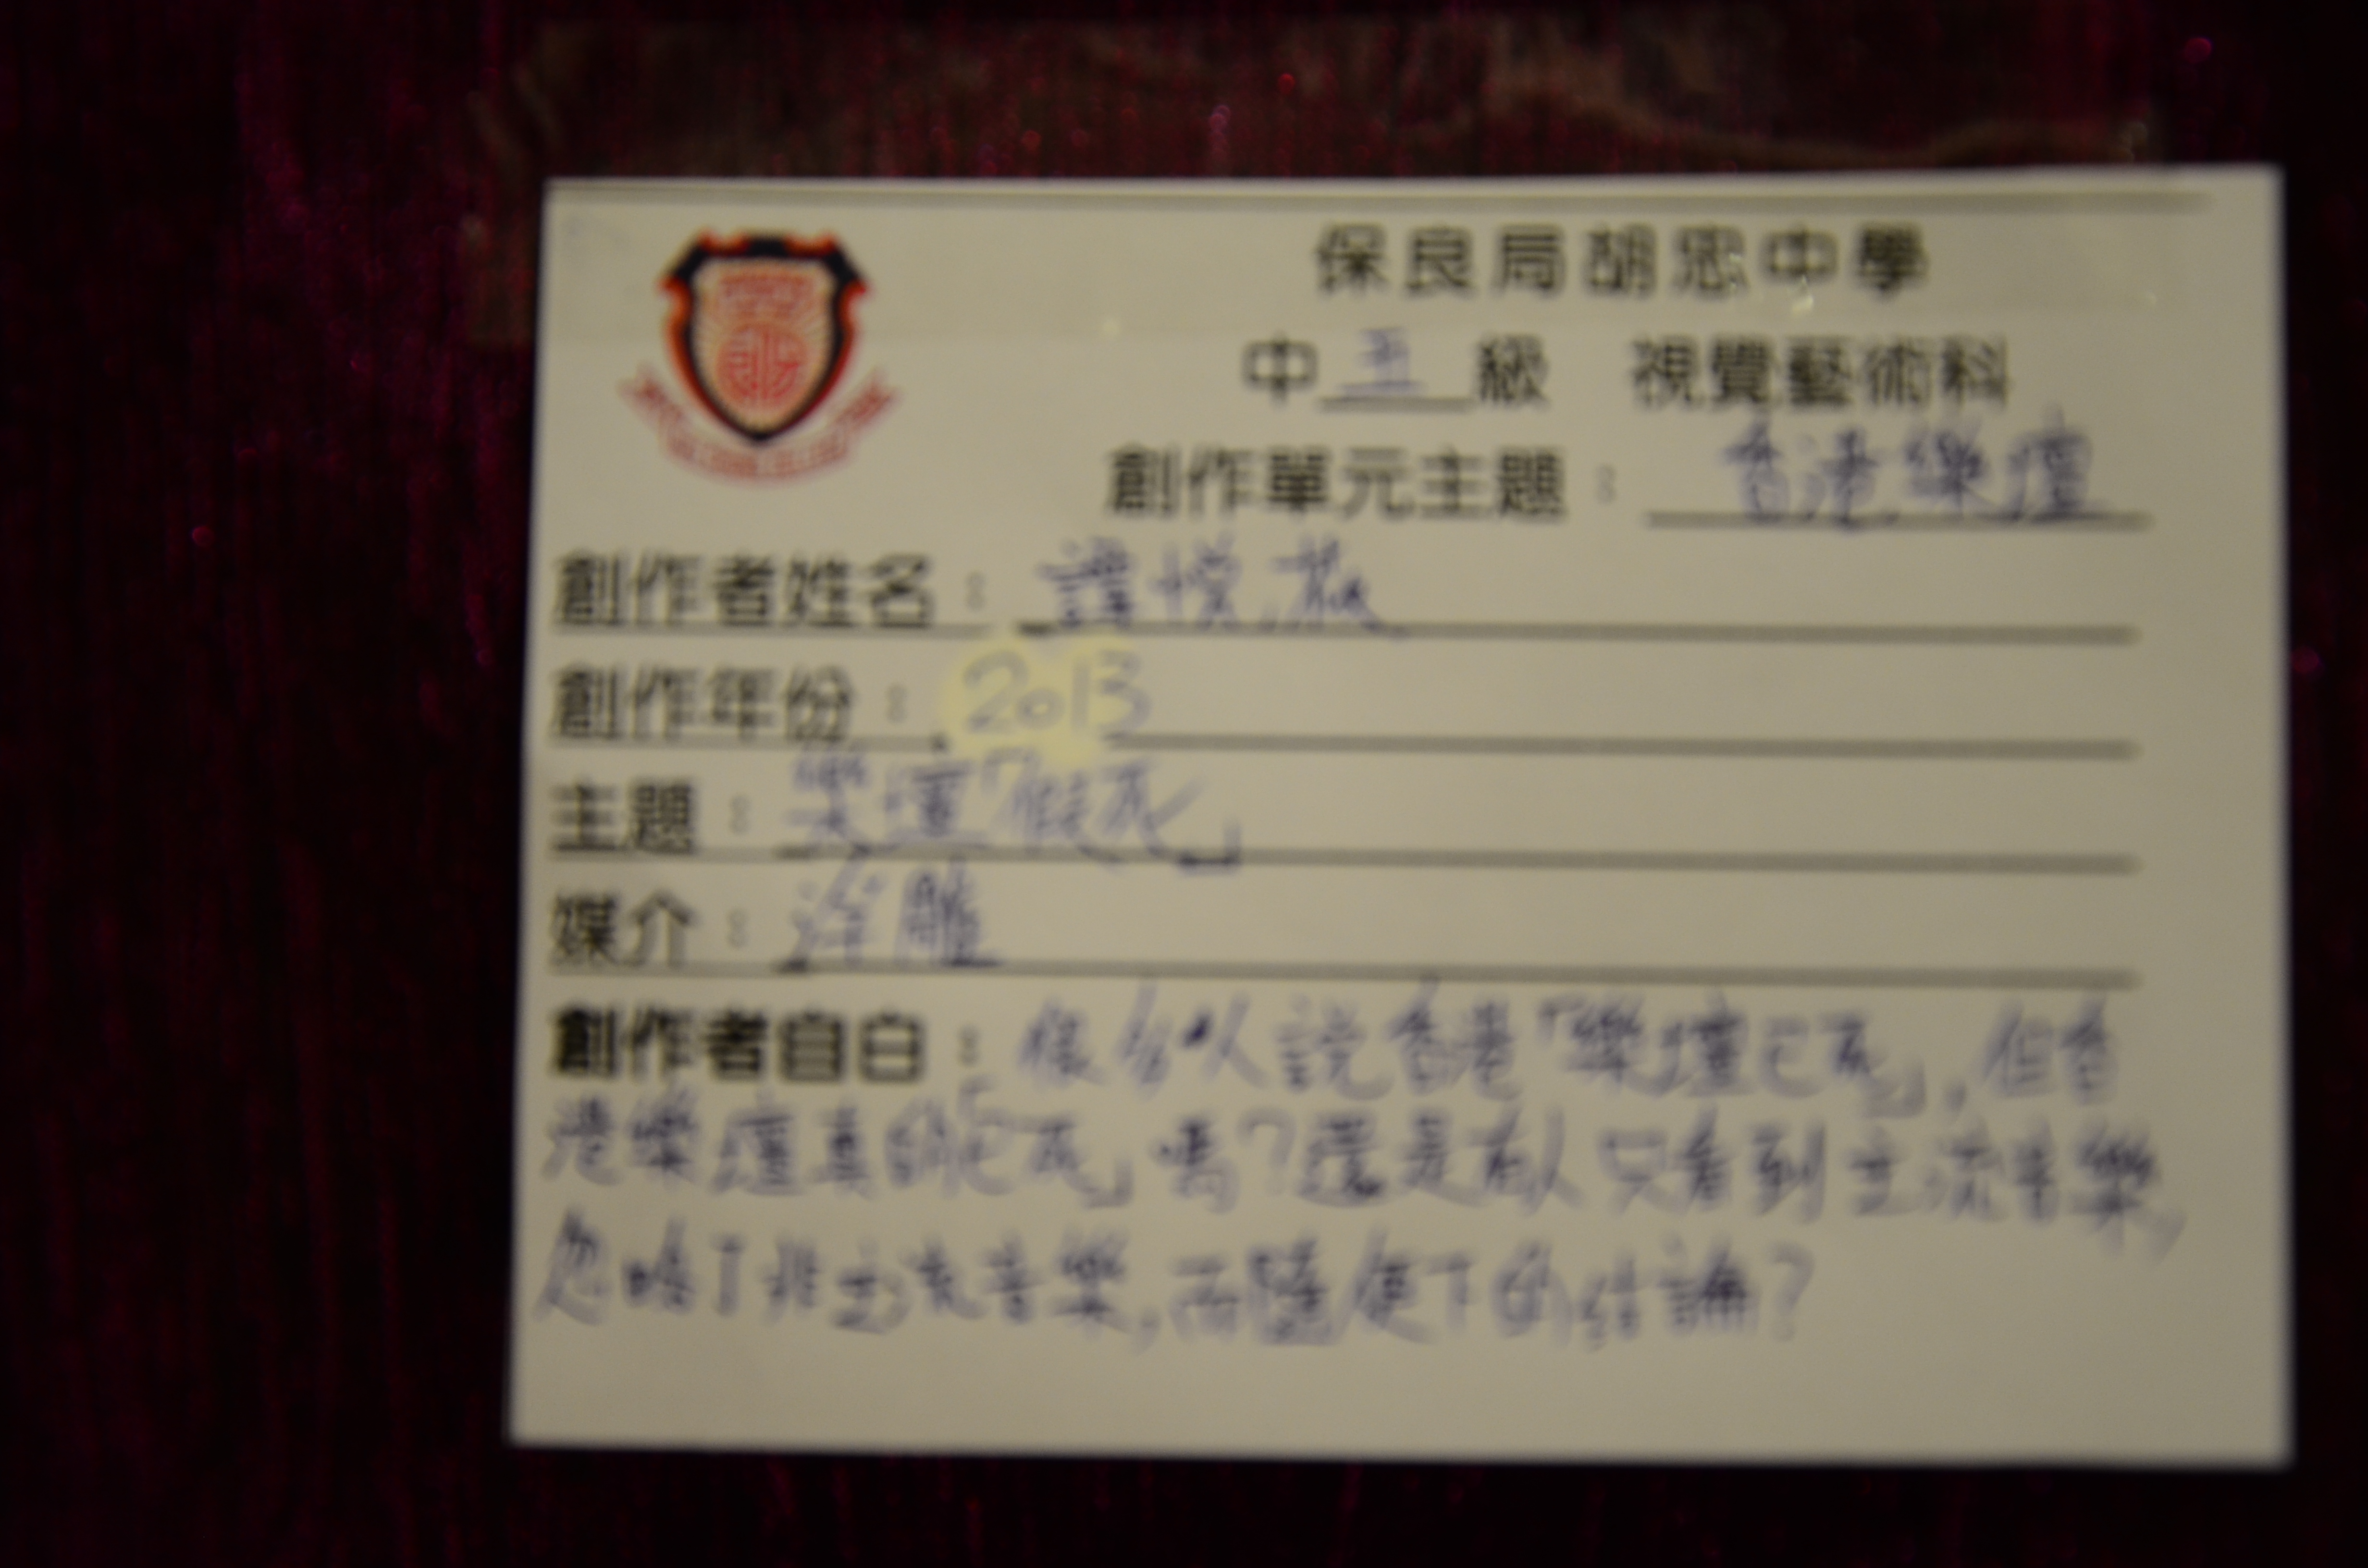 保良局胡忠中學
中五級 視覺藝術科
創作單元主題：香港樂壇
創作者姓名：譚悅
創作年份：2013
主題：樂壇「假死」
媒介：浮雕
創作者自白：很多人說香港「樂壇已死」，但香
港樂壇真的「已死」嗎？還是有人只看到主流音樂，
忽略了非主流音樂，而隨便下的結論？